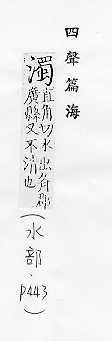 四聲篇海
濁 直角切水出齊郡
廣縣又不清也
(水部、
P443)